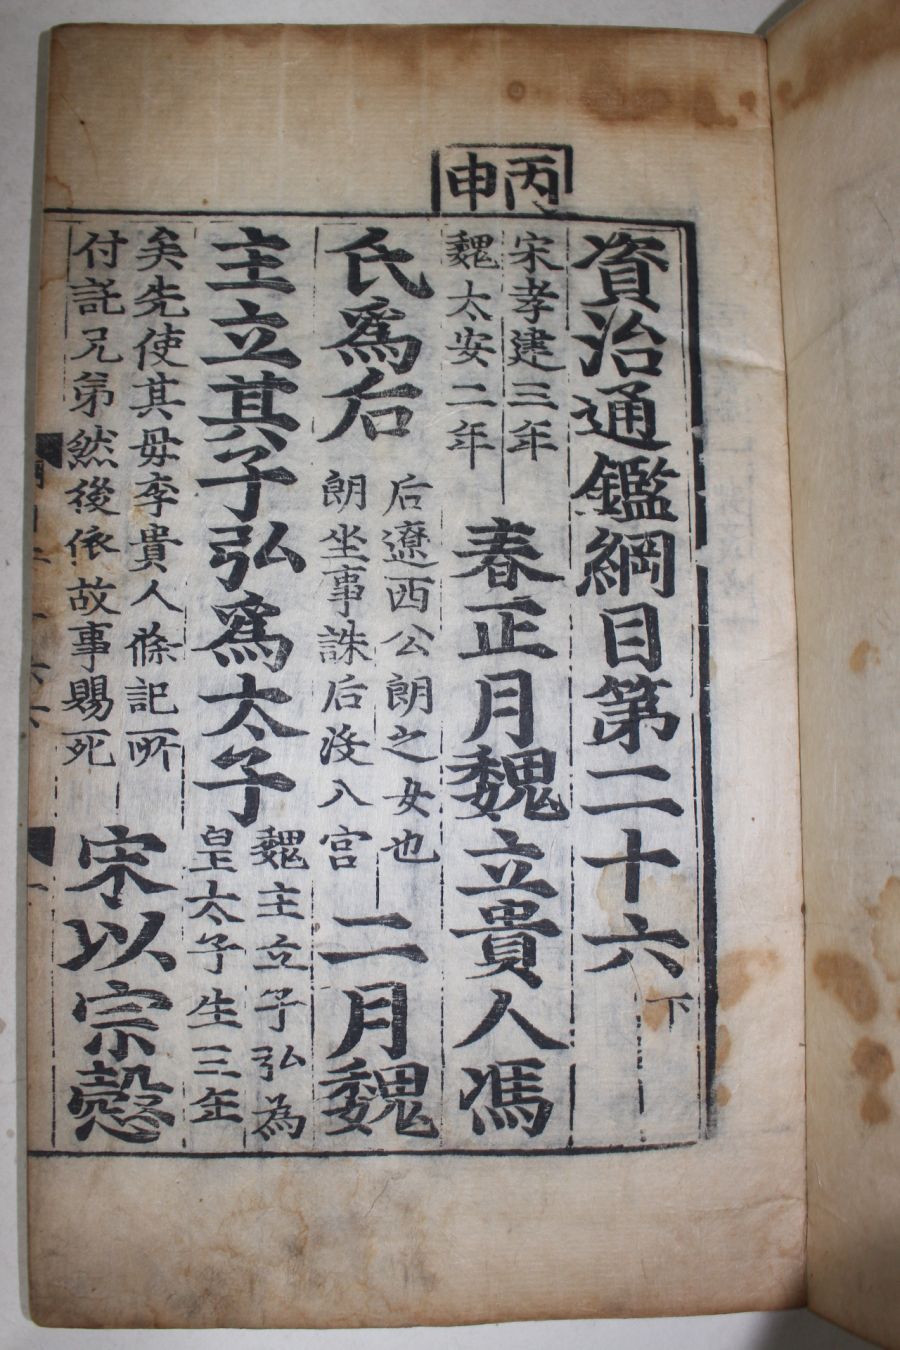 丙申
資治通鑑綱目第二十六下
宋孝建三年
魏太安二年
春正月魏立貴人馮
氏爲后
后遼西公朗之女也
朗坐事誅后沒入宮
二月魏
主立其子弘爲太子
魏主立子弘為
皇太子生三年
矣先使其母李貴人條記所
付託兄弟然後依故事賜死
宋以宗慤